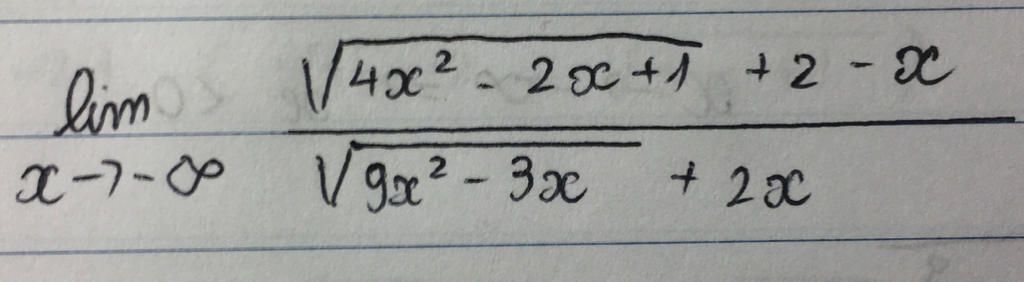 lim √4x² - 2x + 1 + 2 - x
x → -∞ √9x² - 3x + 2x